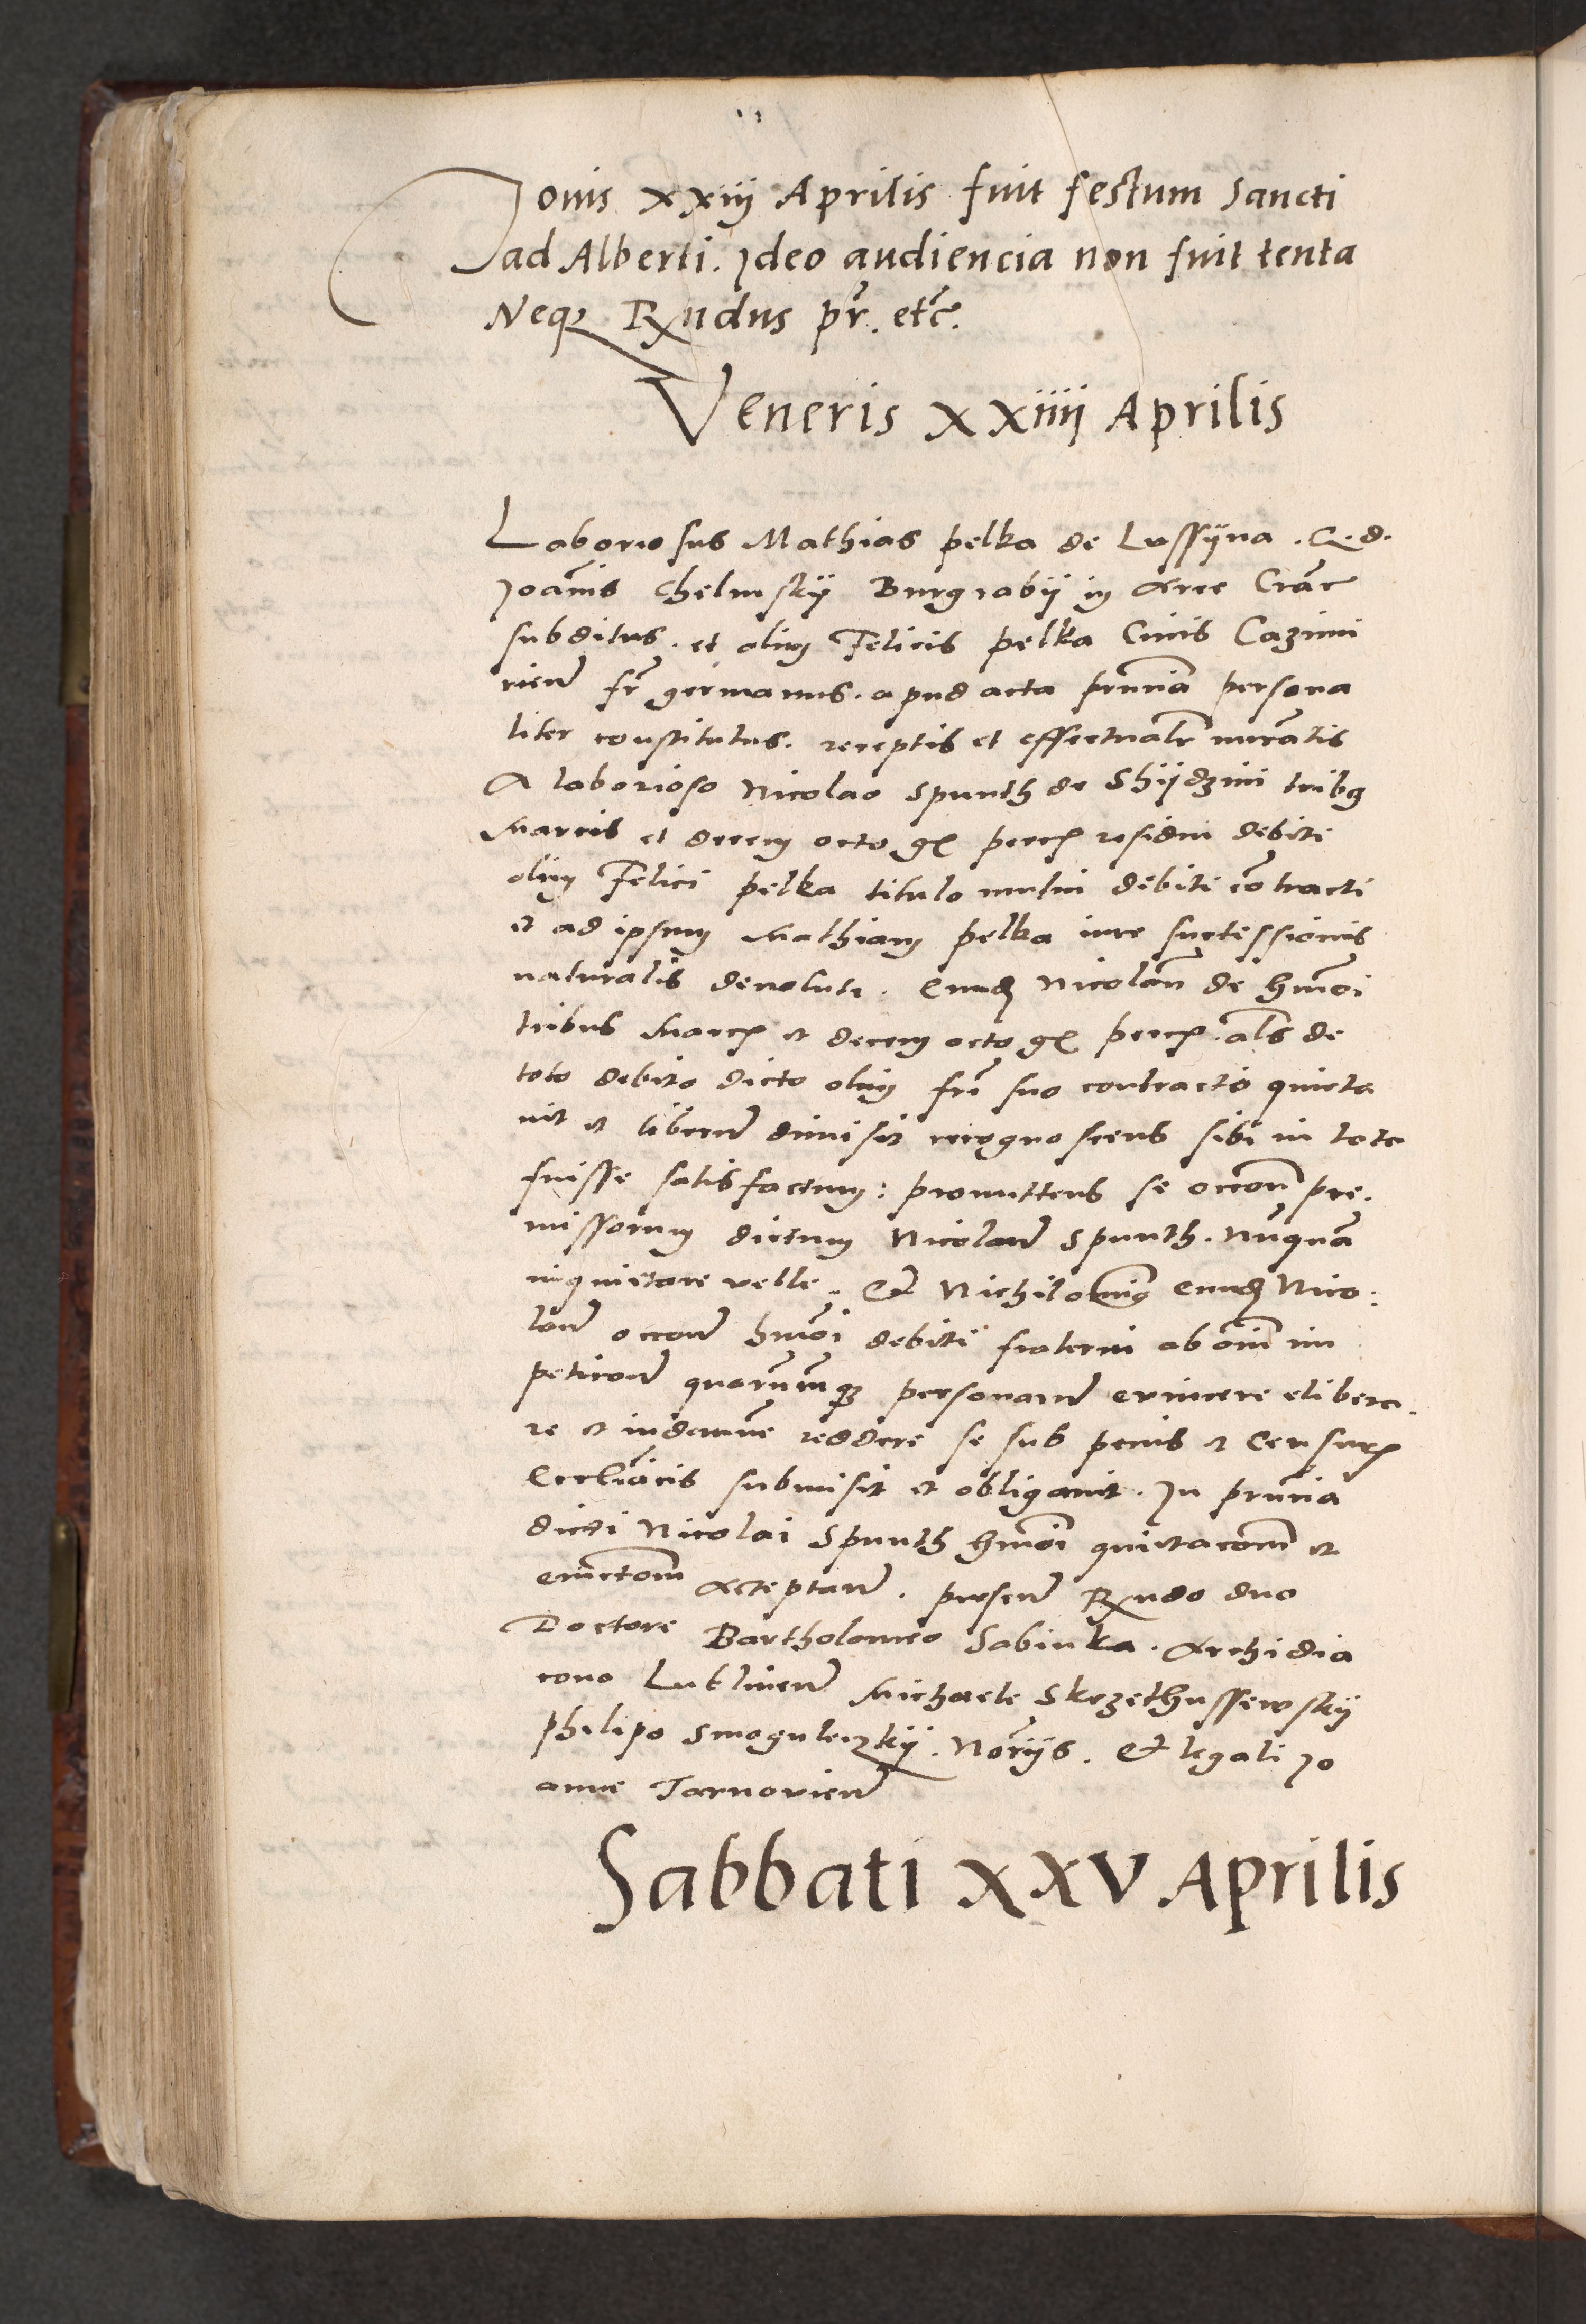 Jouis xxiij Aprilis fuit festum Sancti
ad Alberti. Ideo audiencia non fuit tenta
Neqꝫ Rndus pr̄. etc̄.
Veneris xxiiij Aprilis
Laboriosus Mathias pelka de Lussyna . G. d.
Joānis Chelmskij Burgrabij in Arce Crac̄
subditus . et olim Felicis pelka Ciuis Cazimi
rien̄ fr̄ germanus . apud acta pn̄cia persona
liter constitutus . receptis et effectualr̄ nūratis
A laborioso Nicolao Spunth de tribꝫ
Marcis et decem octo gꝛ pecc̄ residui debiti
olim Felici pelka titulo mutui debiti cōtracti
et ad ipsum Mathiam pelka iure successionis
naturalis deuoluti . Eundē Nicolaū de hmōi
tribus Marcꝭ et decem octo gꝛ pecc̄ . als̄ de
toto debito dicto olim fri̅ suo contracto quieta
uit et liberū dimisit recognoscens sibi in toto
fuisse satisfactum : promittens se occōn̄ pre.
missorum dictum Nicolaū Spunth . nūquā
inquietare velle . Et Nichilominꝰ Eundē Nico:
laū occōn̄ hmōi debiti fraterni ab om̄i im
peticōn̄ quorūcunqꝫ personarū euincere elibera.
re et indemnē reddere se sub penis et Censurꝭ
Ecclīacis submisit et obligauit . In pn̄cia
dicti Nicolai Spunth hmōi quietacōm̄ et
euictōm̄ Acceptan̄ . presen̄ Rndo dno
Doctore Bartholomeo Sabinka . Archidia
cono Lublinen̄ Michaele Skrzethussewskij
philipo Smoguleczkij . Notr̄ijs . Et legali Jo
anne Tarnovien̄
Sabbati XXV Aprilis